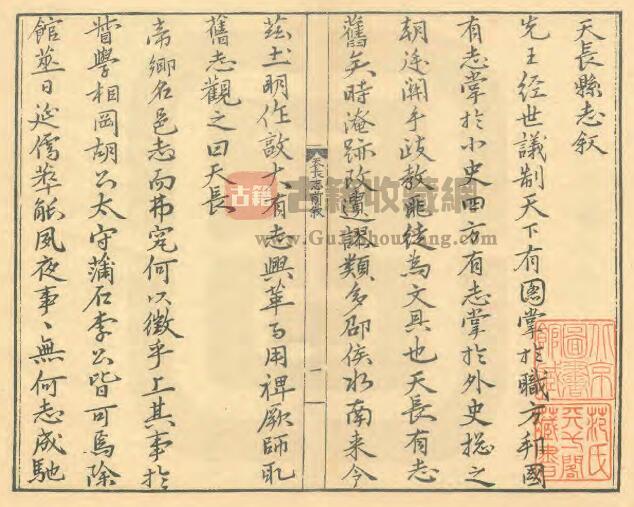 天長縣志叙
先王经世議制天下有圖掌扵職方邦國
有志掌扵小史四方有志掌扵外史揔之
朝逵関乎政教匪徒為文具也天長有志
舊矣時淹跡改遺謬類多邵侯水南来令
茲土明作敢大有志興革日用裨厥師取
舊志觀之曰天長
帝鄉名邑志而弗完何以徵乎上其事扵
督學相岡胡公太守蒲石李公皆可焉除
館蒸日延儒萃能夙夜事〻無何志成馳
天長志前叙
一
古籍 古籍收藏網
www.GuJiShouCang.com
天一閣
范氏
藏書